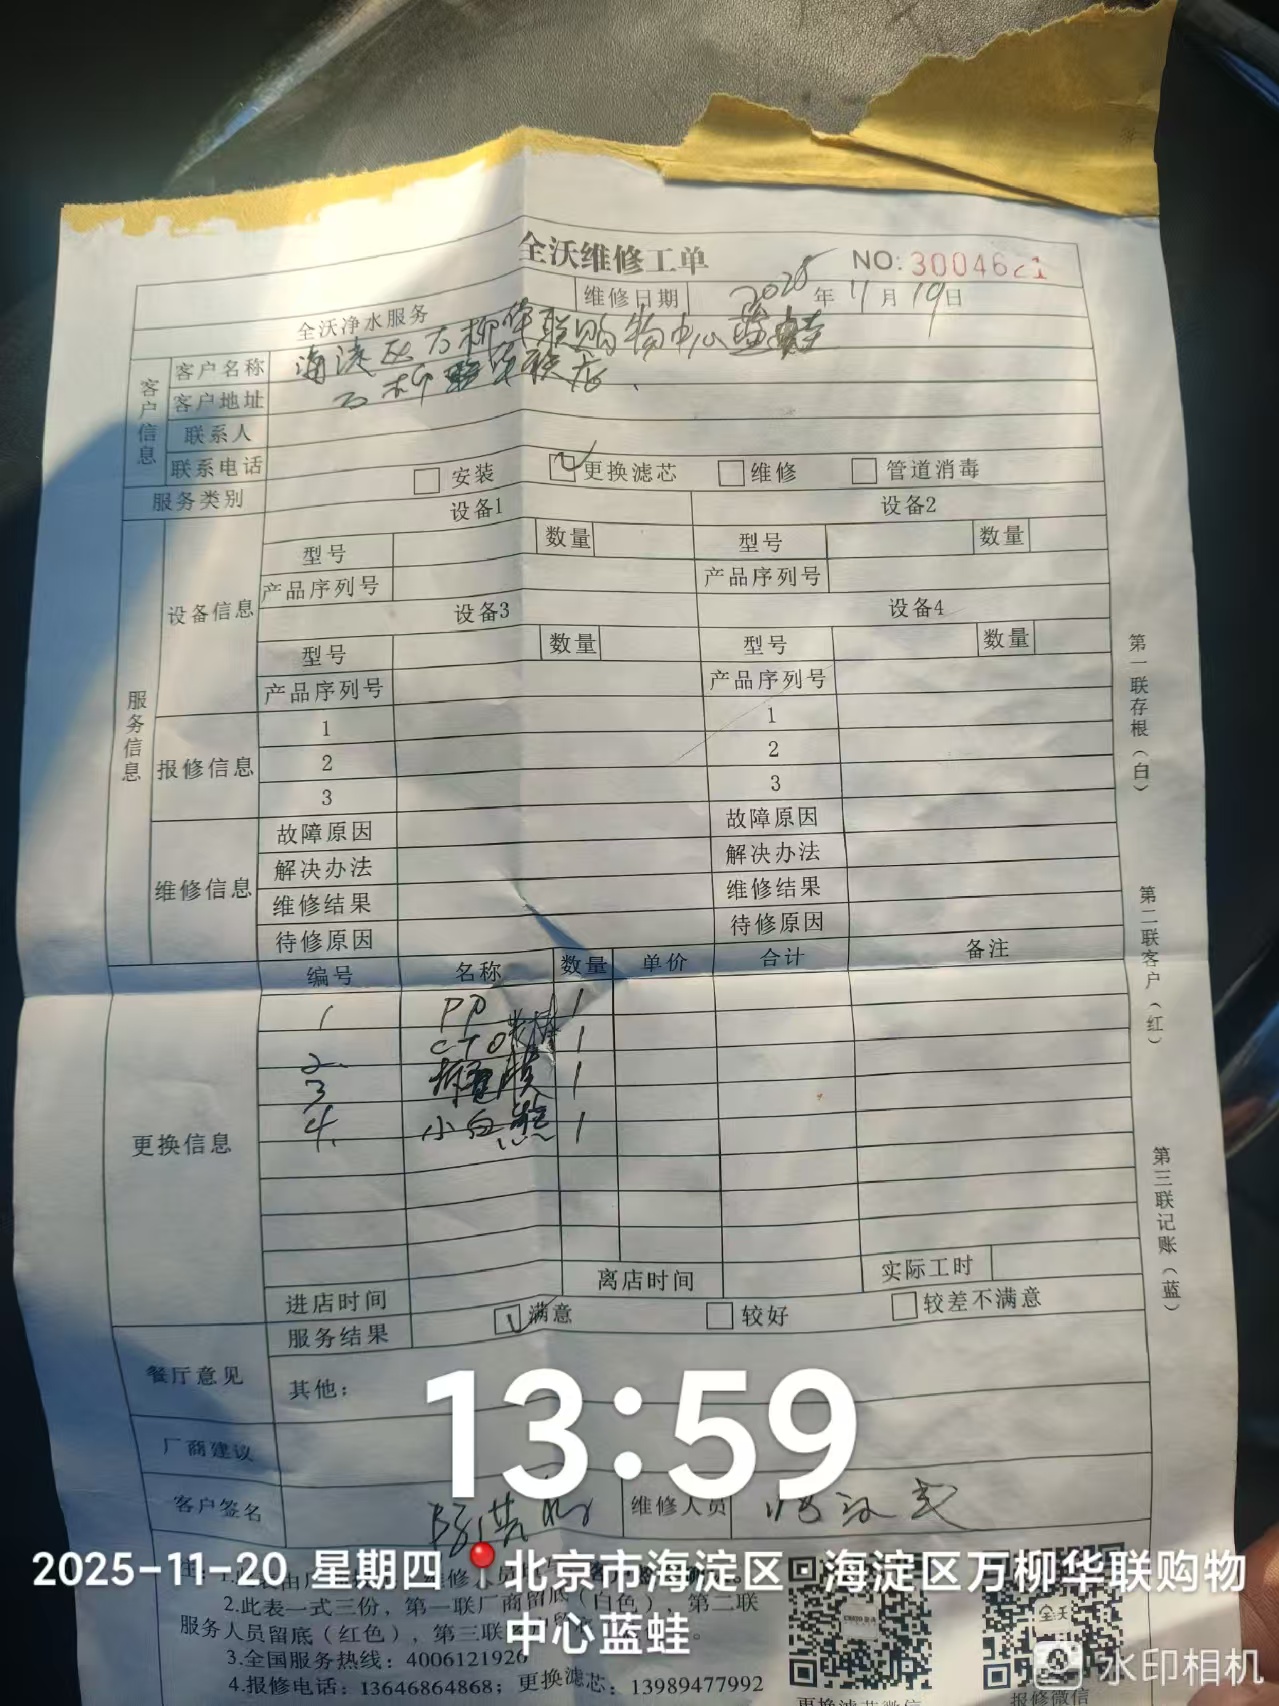 全沃维修工单
NO: 3004621
全沃净水服务 维修日期 2025年11月19日
客户信息
客户名称 海淀区万柳华联购物中心蓝蛙
客户地址 万柳华联店
联系人
联系电话
服务类别 安装 更换滤芯 维修 管道消毒
服务信息
设备信息
设备1 设备2
型号 数量 型号 数量
产品序列号 产品序列号
设备3 设备4
型号 数量 型号 数量
产品序列号 产品序列号
报修信息
1 1
2 2
3 3
维修信息
故障原因 故障原因
解决办法 解决办法
维修结果 维修结果
待修原因 待修原因
更换信息
编号 名称 数量 单价 合计 备注
1 PP 1
2 CTO 1
3 膜 1
4 小白熊 1
进店时间 离店时间 实际工时
服务结果 满意 较好 较差不满意
餐厅意见 其他:
厂商建议
客户签名 维修人员
第一联存根(白)
第二联客户(红)
第三联记账(蓝)
13:59
2025-11-20 星期四 北京市海淀区·海淀区万柳华联购物
中心蓝蛙
2.此表一式三份,第一联厂商留底(白色),第二联
服务人员留底(红色),第三联
3.全国服务热线:4006121926
4.报修电话:13646864868;更换滤芯:13989477992
更换滤芯微信
报修微信
水印相机